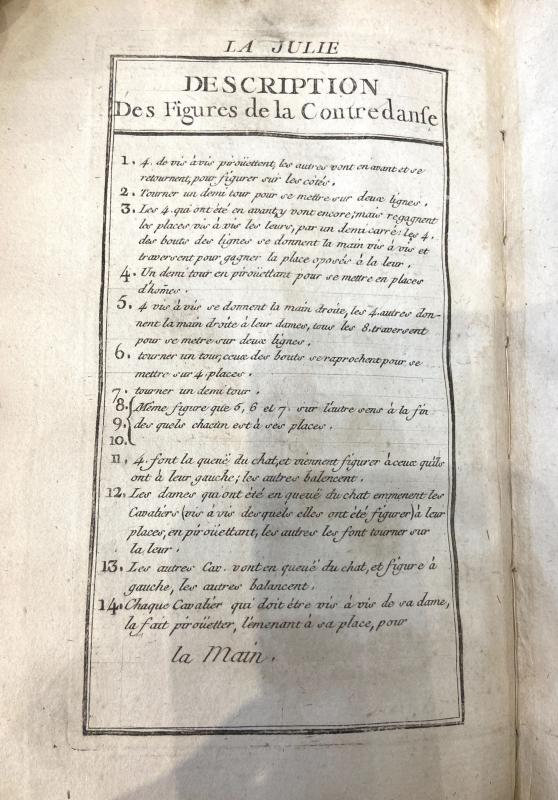 LA JULIE
DESCRIPTION
Des Figures de la Contredanse
1. 4. de vis à vis piroüettent, les autres vont en avant et se
retournent, pour figurer sur les côtés.
2. Tourner un demi tour pour se mettre sur deux lignes.
3. Les 4. qui ont été en avant, y vont encore; mais regagnent
les places vis à vis les leurs, par un demi carré: les 4.
des bouts des lignes se donnent la main vis à vis et
traversent pour gagner la place oposés à la leur.
4. Un demi tour en piroüettant pour se mettre en places
d'hom̃es.
5. 4 vis à vis se donnent la main droite, les 4. autres don-
nent la main droite à leur dames, tous les 8. traversent
pour se metre sur deux lignes.
6. tourner un tour, ceux des bouts se raprochent pour se
mettre sur 4. places.
7. tourner un demi tour.
8. Même figure que 5, 6 et 7. sur l'autre sens à la fin
9. des quels chacun est à ses places.
10.
11. 4. font la queuë du chat, et viennent figurer à ceux qu'ils
ont à leur gauche; les autres balencent.
12. Les dames qui ont été en queuë du chat emmenent les
Cavaliérs (vis à vis desquels elles ont été figurer) à leur
places, en piroüettant, les autres les font tourner sur
la leur.
13. Les autres Cav. vont en queuë du chat, et figure à
gauche, les autres balancent.
14. Chaque Cavalier qui doit être vis à vis de sa dame,
la fait piroüetter, l'émenant à sa place, pour
la Main.